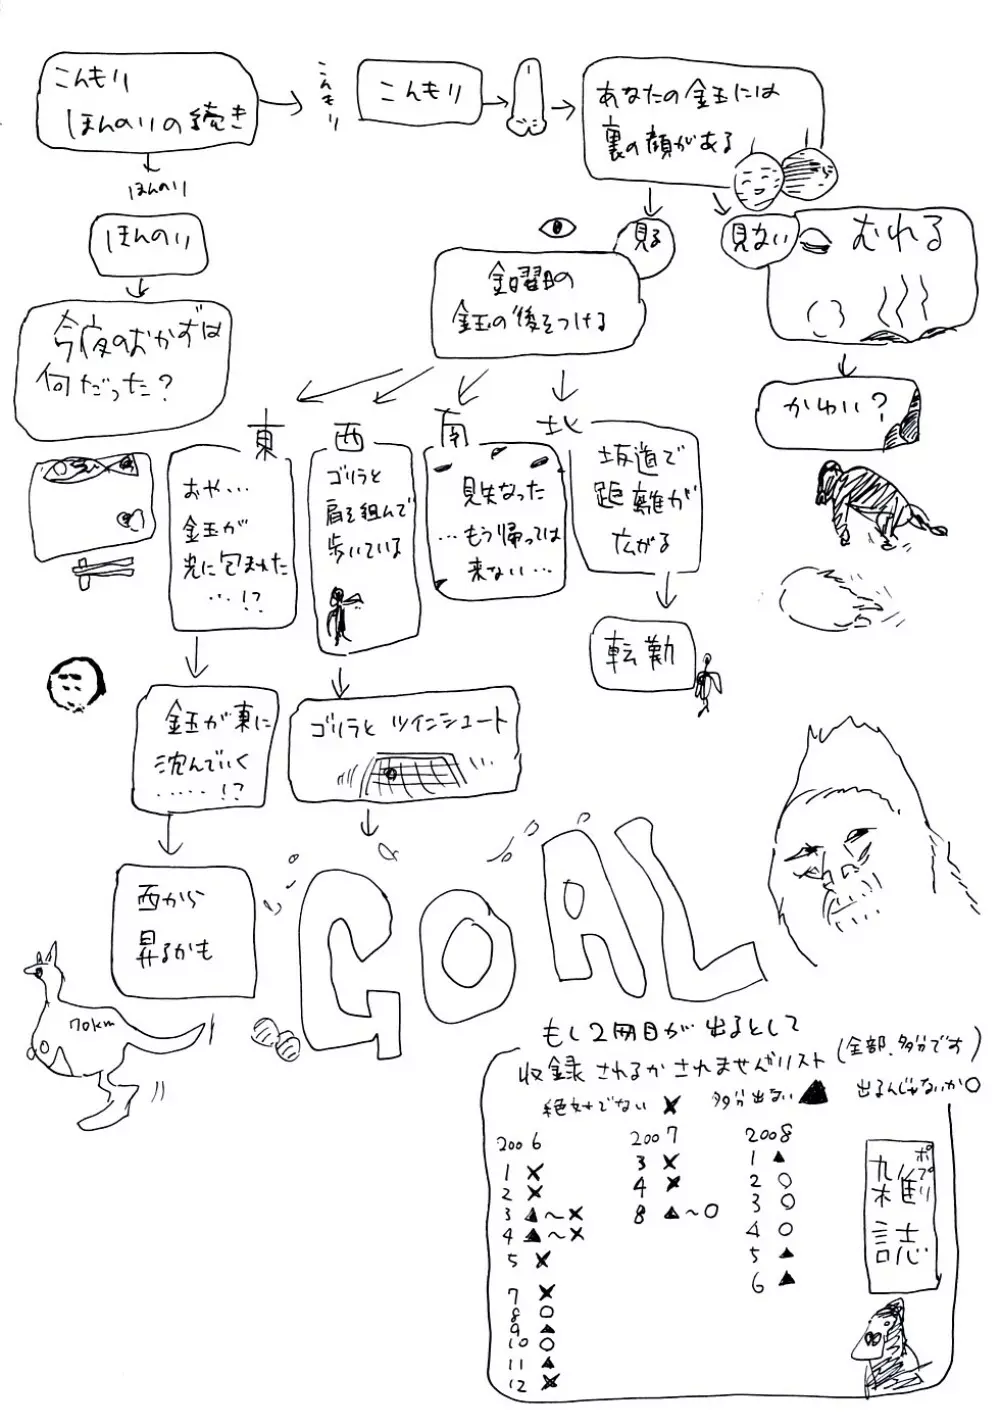 こんもり
ほんのりの続き
こんもり
こんもり
あなたの金玉には
裏の顔がある
ほんのり
ほんのり
今夜のおかずは
何だった？
見る
見ない
むれる
金曜日の
金玉の後をつける
かわい？
東
おや…
金玉が
光に包まれた
…!?
西
ゴリラと
肩を組んで
歩いている
南
見失なった
…もう帰っては
来ない…
北
坂道で
距離が
広がる
転勤
金玉が東に
沈んでいく
……!?
ゴリラと ツインシュート
西から
昇るかも
GOAL
70km
もし2冊目が出るとして
収録されるかされませんがリスト(全部、多分です)
絶対でない ✕ 多分出ない ▲ 出るんじゃないか〇
2006
1 ✕
2 ✕
3 ▲〜✕
4 ▲〜✕
5 ✕
7 ✕
8 〇
9 ▲
10 〇
11 ▲
12 ✕
2007
3 ✕
4 ✕
8 ▲〜〇
2008
1 ▲
2 〇
3 〇
4 〇
5 ▲
6 ▲
ポプリ
雑誌